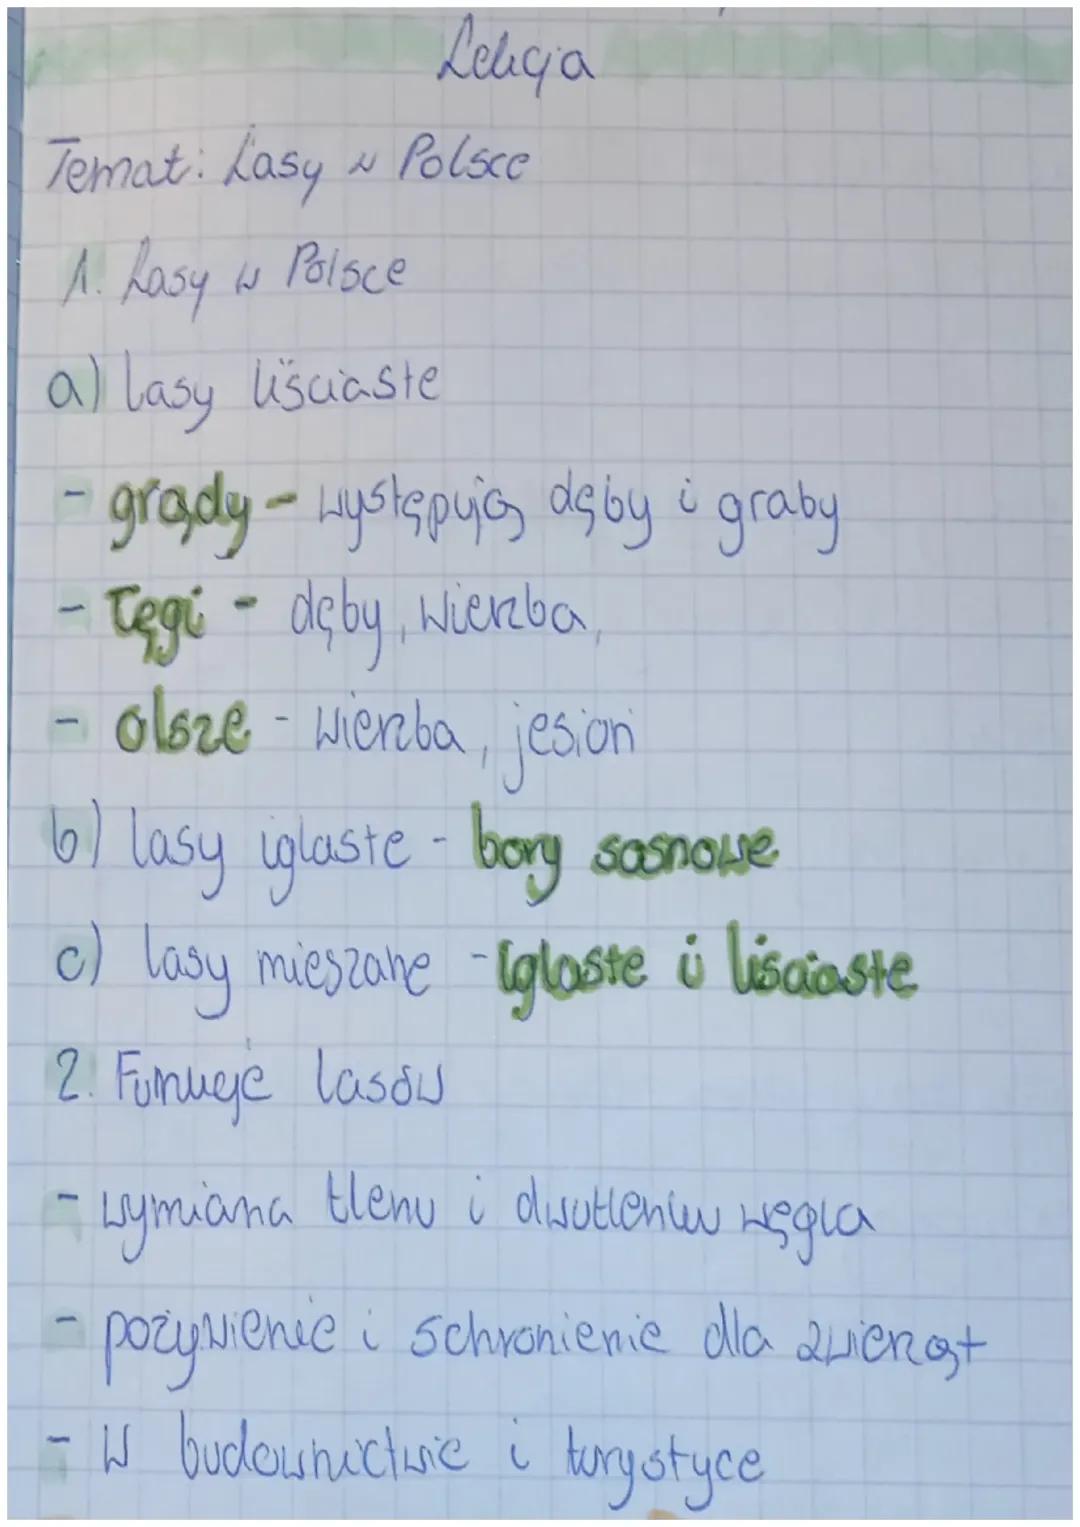 Lekcja
Temat: Lasy w Polsce
1. Lasy w Polsce
a) lasy liściaste
- grądy - występują dęby i graby
- Łęgi - dęby, wierzba,
- olsze - wierzba, jesion
b) lasy iglaste - bory sosnowe
c) lasy mieszane - iglaste i liściaste
2. Funkcje lasów
- wymiana tlenu i dwutlenku węgla
- pożywienie i schronienie dla zwierząt
- w budownictwie i turystyce